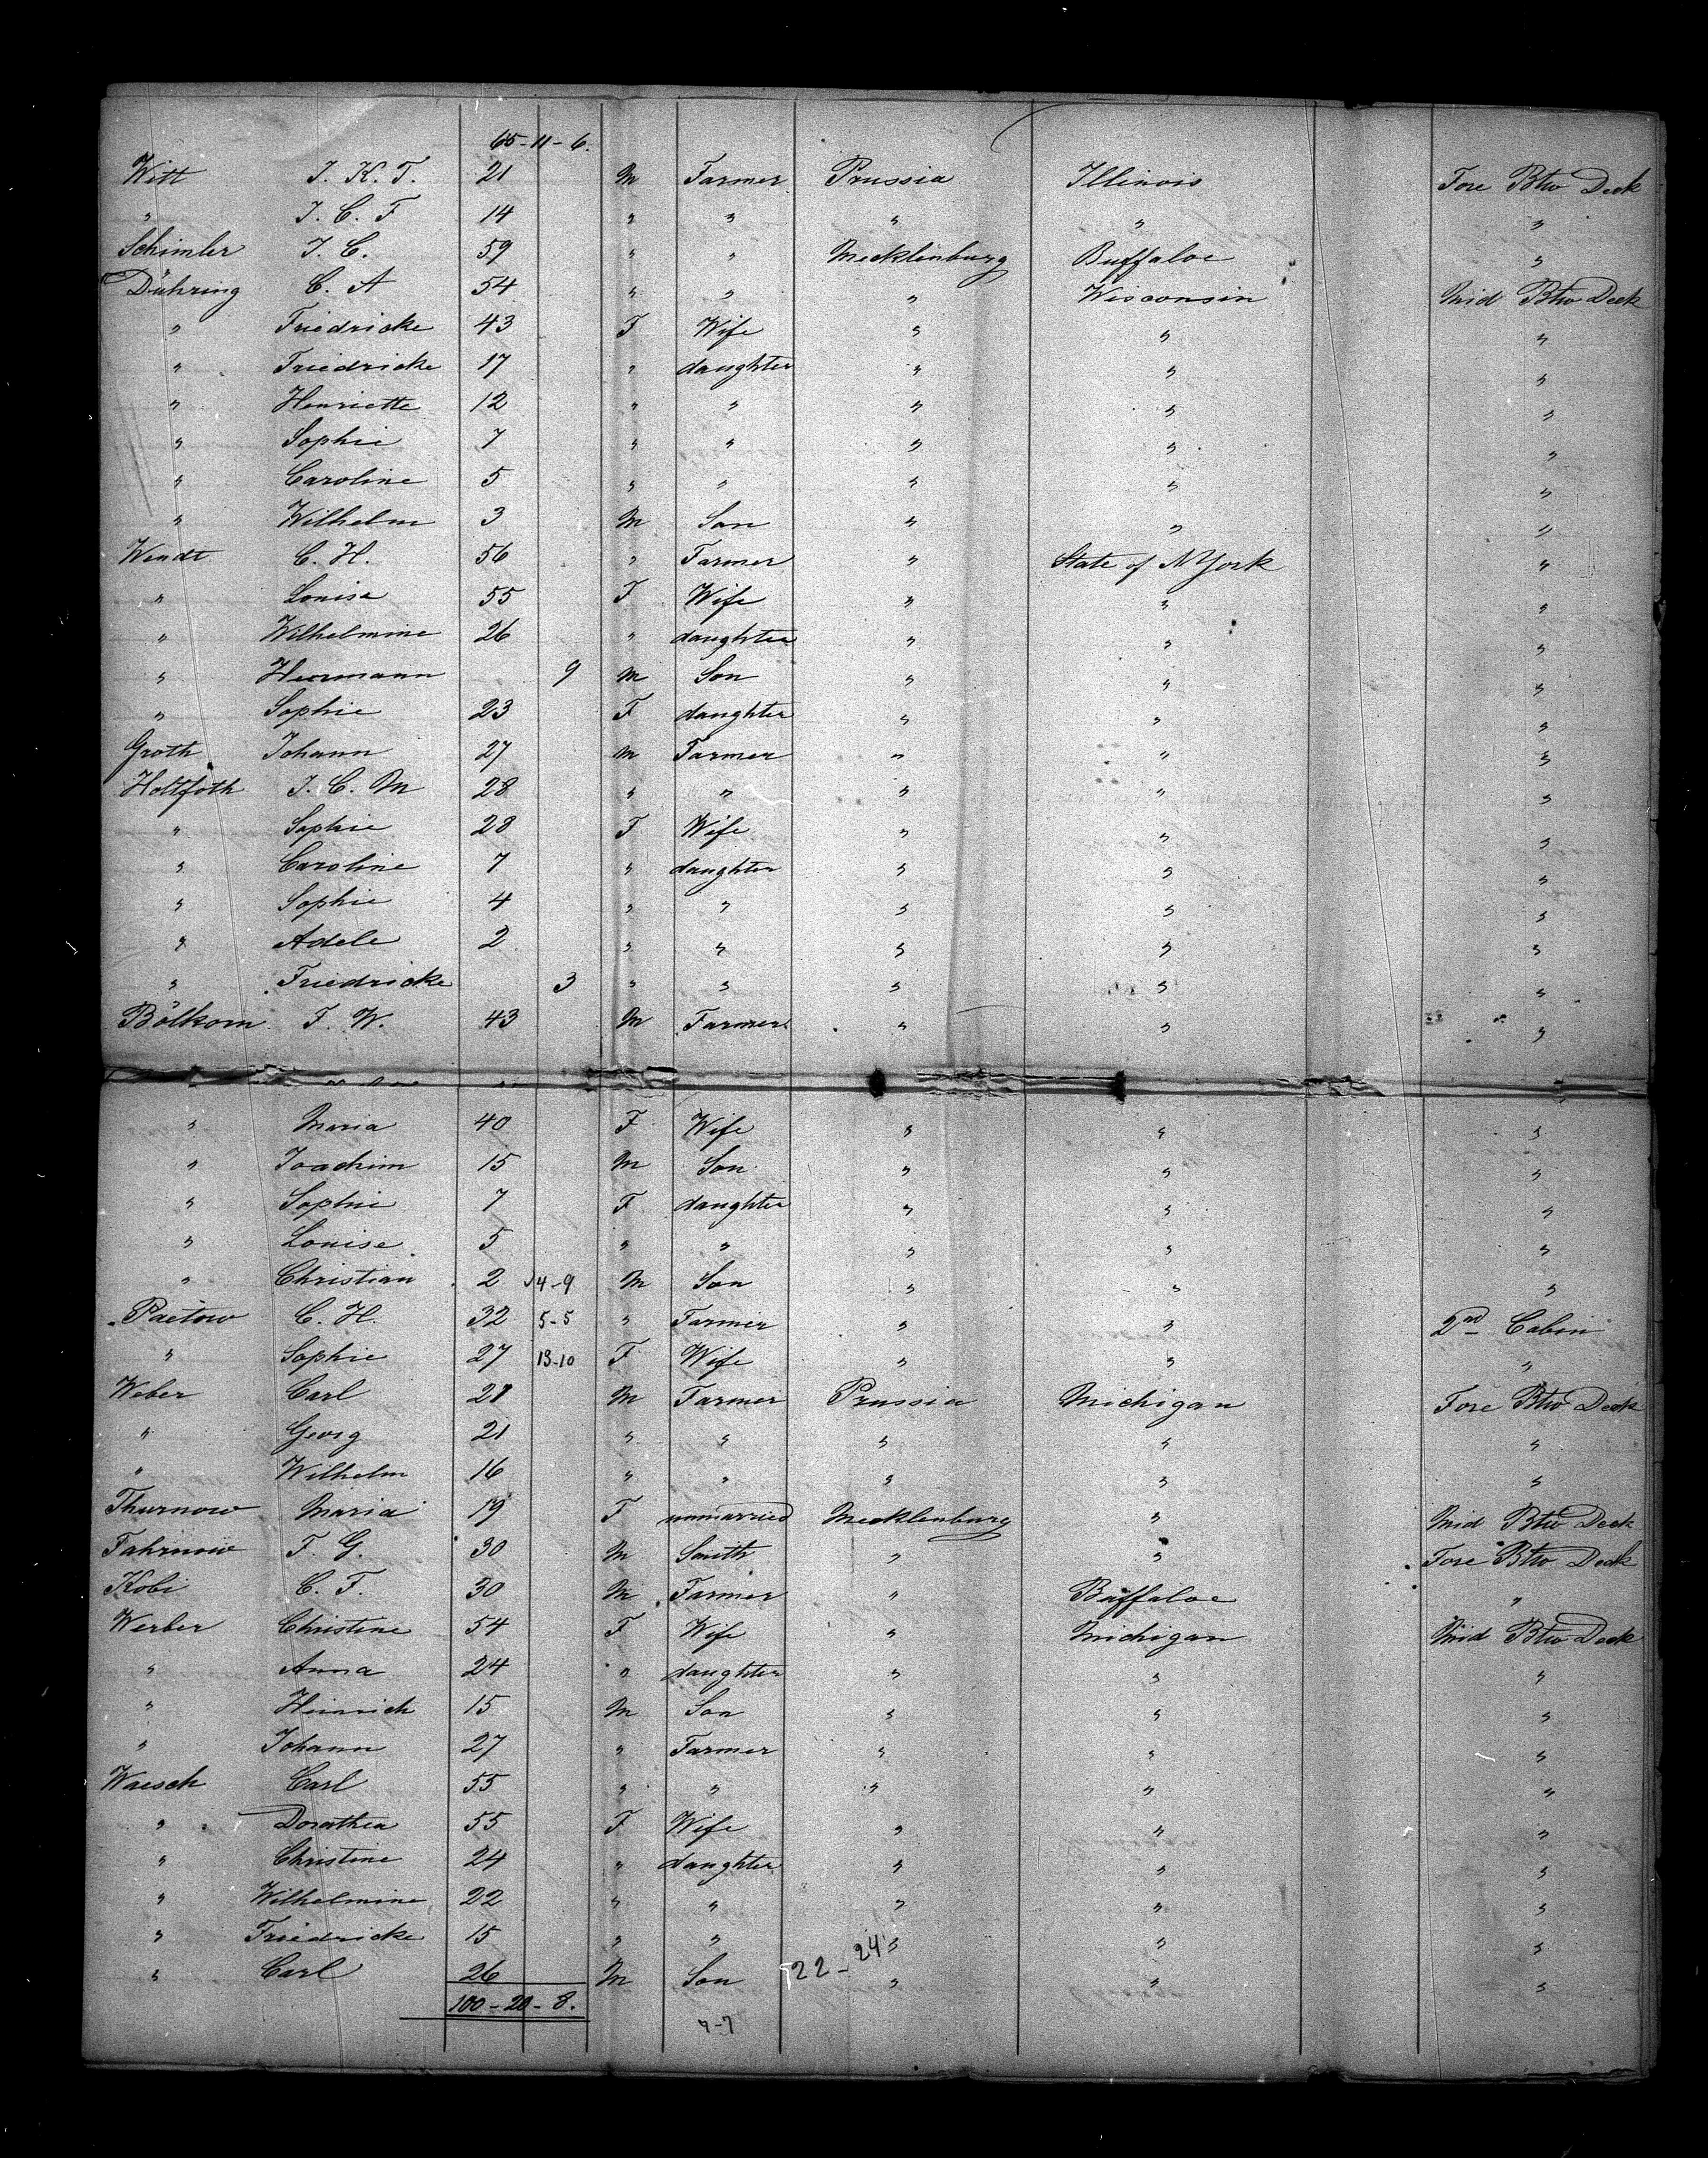 65-11-6.
Witt J. K. T. 21 M Farmer Prussia Illinois Fore Btw Deck
" J. C. F 14 " " " " "
Schimler J. C. 59 " " Mecklenburg Buffaloe "
Dühring C. A 54 " " " Wisconsin Mid Btw Deck
" Friedricke 43 F Wife " " "
" Friedricke 17 " daughter " " "
" Henriette 12 " " " " "
" Sophie 7 " " " " "
" Caroline 5 " " " " "
" Wilhelm 3 M Son " " "
Wendt C. H. 56 " Farmer " State of N York "
" Louise 55 F Wife " " "
" Wilhelmine 26 " daughter " " "
" Herrmann 9 M Son " " "
" Sophie 23 F daughter " " "
Groth Johann 27 M Farmer " " "
Holtfoth J. C. M 28 " " " " "
" Sophie 28 F Wife " " "
" Caroline 7 " daughter " " "
" Sophie 4 " " " " "
" Adele 2 " " " " "
" Friedricke 3 " " " " "
Bölkom F. W. 43 M Farmer " " "
" Maria 40 F Wife " " "
" Joachim 15 M Son " " "
" Sophie 7 F daughter " " "
" Louise 5 " " " " "
" Christian 2 14-9 M Son " " "
Paetow C. H. 32 5-5 " Farmer " " 2nd Cabin
" Sophie 27 13-10 F Wife " " "
Weber Carl 21 M Farmer Prussia Michigan Fore Btw Deck
" Georg 21 " " " " "
" Wilhelm 16 " " " " "
Thurnow Maria 19 F unmarried Mecklenburg " Mid Btw Deck
Fahrnow F. G. 30 M Smith " " Fore Btw Deck
Kobi C. F. 30 M Farmer " Buffaloe "
Werber Christine 54 F Wife " Michigan Mid Btw Deck
" Anna 24 " daughter " " "
" Hinrich 15 M Son " " "
" Johann 27 " Farmer " " "
Waesch Carl 55 " " " " "
" Dorathea 55 F Wife " " "
" Christine 24 " daughter " " "
" Wilhelmine 22 " " " " "
" Friedricke 15 " " " " "
" Carl 26 M Son 22-24 " " "
100-20-8.